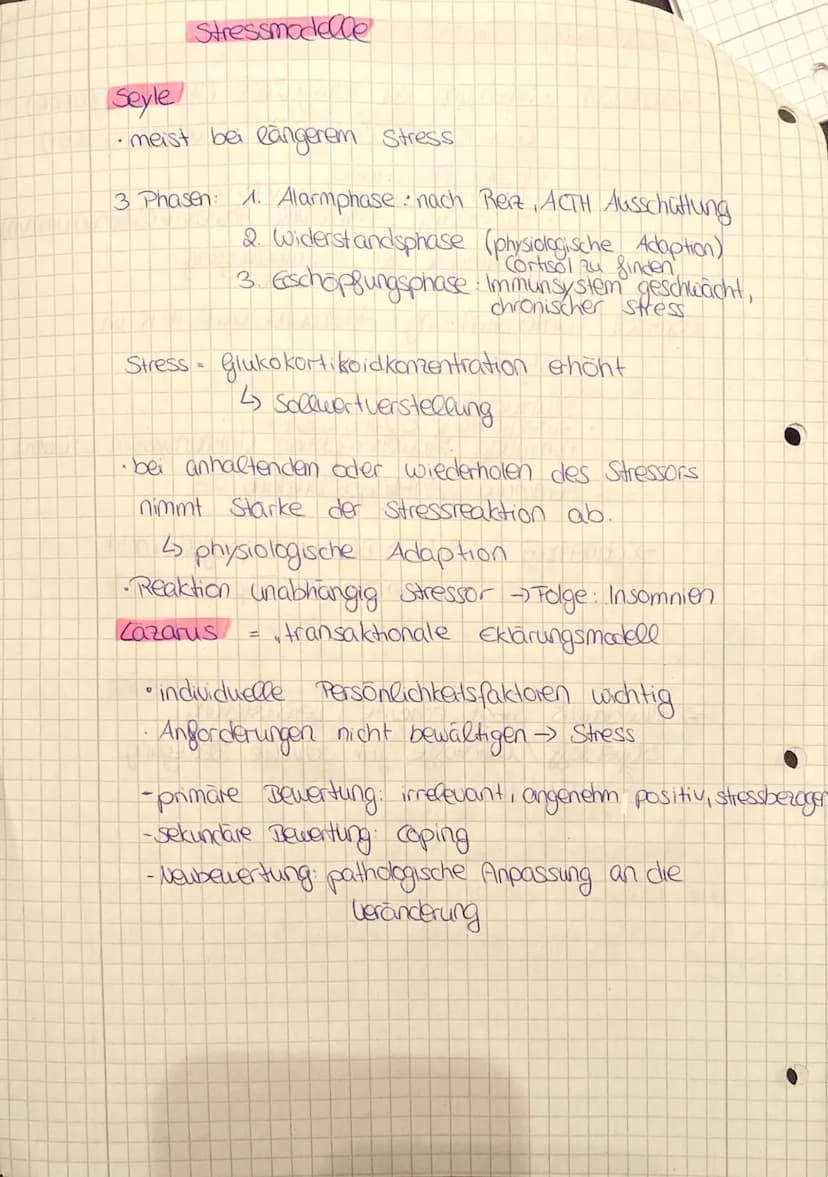 Stressmodelle
Seyle
· meist bei längerem Stress
3 Phasen: 1. Alarmphase: nach Reiz, ACTH Ausschüttung
2. Widerstandsphase (physiologische Adaption)
Cortisol zu finden
3. Erschöpfungsphase: Immunsystem geschwächt,
chronischer Stress
Stress = Glukokortikoidkonzentration erhöht
↳ Sollwertverstellung
· bei anhaltendem oder wiederholen des Stressors
nimmt Stärke der Stressreaktion ab.
↳ physiologische Adaption
· Reaktion unabhängig Stressor → Folge: Insomnien
Lazarus = transaktionale Eklärungsmodell
• individuelle Persönlichkeitsfaktoren wichtig
· Anforderungen nicht bewältigen → Stress
- primäre Bewertung: irrelevant, angenehm positiv, stressbezogen
- sekundäre Bewertung: coping
- Neubewertung: pathologische Anpassung an die
Veränderung